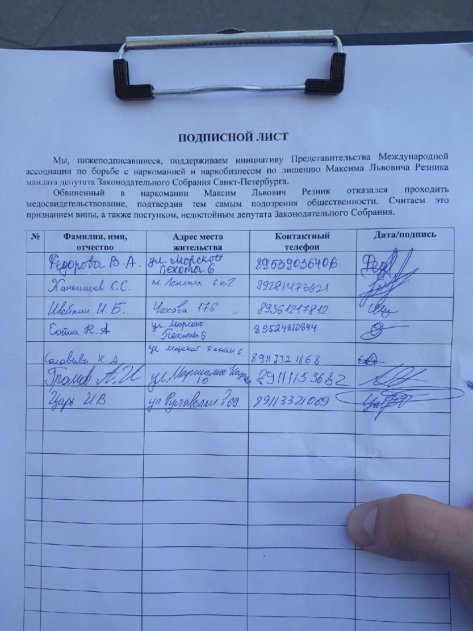 ПОДПИСНОЙ ЛИСТ
Мы, нижеподписавшиеся, поддерживаем инициативу Представительства Международной
ассоциации по борьбе с наркоманией и наркобизнесом по лишению Максима Львовича Резника
мандата депутата Законодательного Собрания Санкт-Петербурга.
Обвиненный в наркомании Максим Львович Резник отказался проходить
медосвидетельствование, подтвердив тем самым подозрения общественности. Считаем это
признанием вины, а также поступком, недостойным депутата Законодательного Собрания.
№ Фамилия, имя, отчество Адрес места жительства Контактный телефон Дата/подпись
Федорова В.А. ул. Морской Пехоты 6 89539036406
С.С. 89281473821
И.Б. Чехова 176 89361217812
Н.А ул. Морской Пехоты 5 89524810844
Соловьёва К.А. ул Морской Пехоты 6
Громов А.И ул. 10 89111153682
Царь И.В ул 89113321069